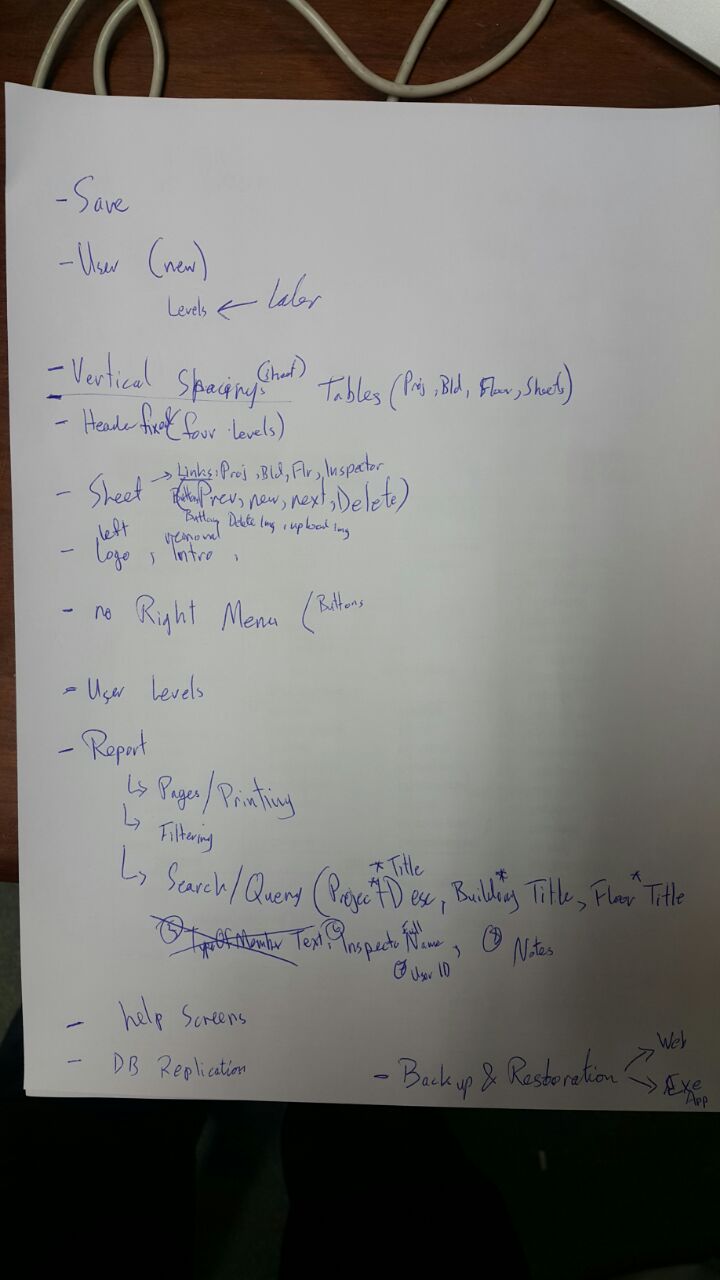 - Save
- User (new)
Levels ← Later
- Vertical Spacings (sheet) Tables (Proj, Bld, Floor, Sheets)
- Header fixed (four levels)
→ Links: Proj, Bld, Flr, Inspector
- Sheet (Buttons Prev, new, next, Delete)
Buttons Delete Img, upload img
left
- Logo, Intro,
- no Right Menu (Buttons
- User Levels
- Report
↳ Pages/Printing
↳ Filtering
* Title
↳ Search/Query (Project* Desc, Building* Title, Floor* Title
⑤ TypeOfMember Text, ⑥ Inspector Full Name, ⑧ Notes
⑦ User ID
- help Screens
- DB Replication
- Backup & Restoration → Web
→ Exe App